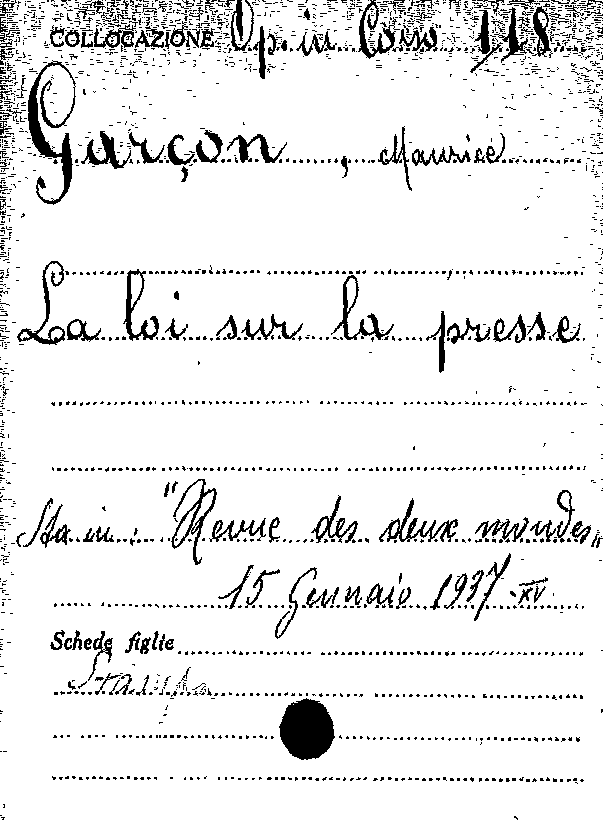 COLLOCAZIONE Op. in Cons 118
Garçon, Maurice
La loi sur la presse
Sta in: "Revue des deux mondes"
15 Gennaio 1937-XV
Schede figlie
Stampa